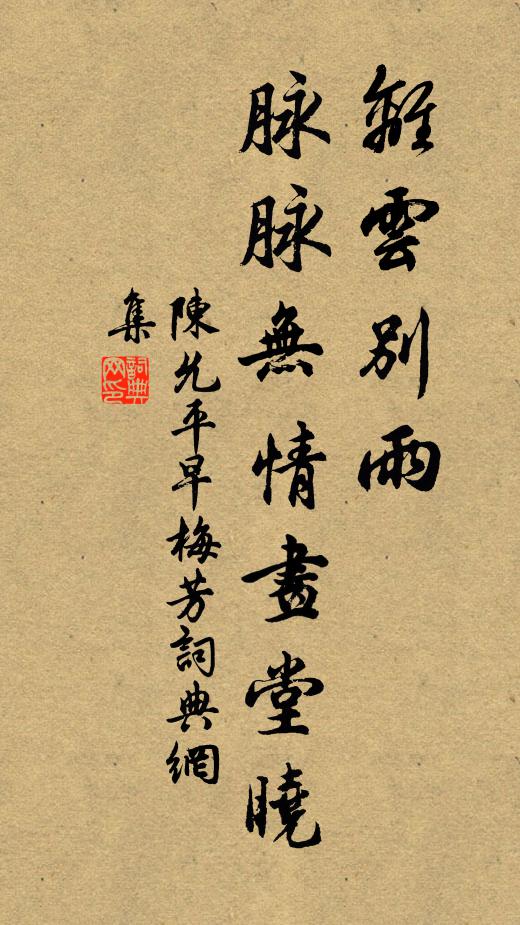 離雲別雨
脉脉無情畫堂曉
陳允平早梅芳詞典網
集
詞典
网印